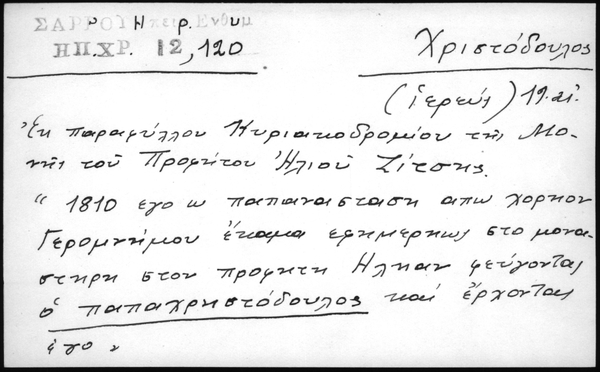 ΣΑΡΡΟΥ Ἠπειρ. Ἐνθυμ
ΗΠ.ΧΡ. 12,120
Χριστόδουλος
(ἱερεύς) 19. αἰ.
Ἐκ παραφύλλου Κυριακοδρομίου τῆς Μο-
νῆς τοῦ Προφήτου Ἠλιοῦ Ζίτσης.
"1810 εγο ω παπαναστασιη απω χοριον
Γερομνήμου ἔκαμα εφημερηως στο μονα-
στηρη στον προφητη Ηληαν φεύγοντας
ὁ παπαχρηστόδουλος και ἔρχοντας
ἐγο"